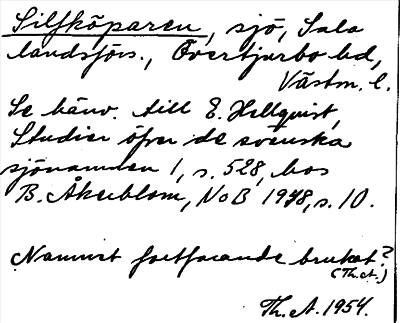 Silfköparen, sjö, Sala
landsförs., Övertjurbo hd,
Västm. l.
Se hänv. till E. Hellquist,
Studier öfver de svenska
sjönamnen 1, s. 528, hos
B. Åkerblom, NoB 1948, s. 10.
Namnet fortfarande brukat?
(Th.A.)
Th. A. 1954.